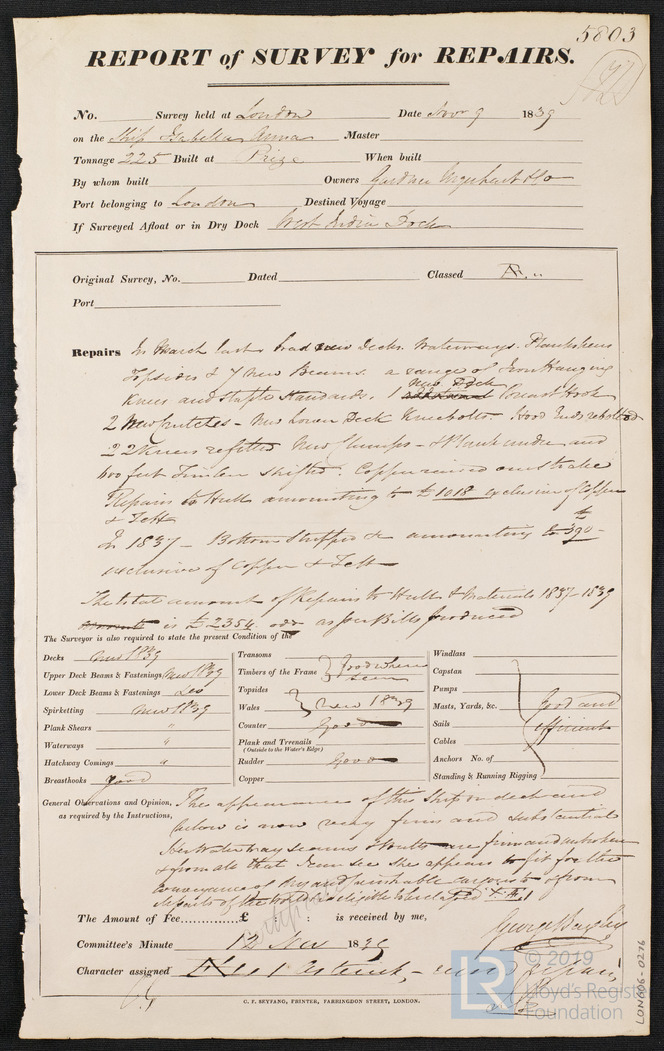 5803
REPORT of SURVEY for REPAIRS.
No. Survey held at London Date Novr 9 1839
on the Ship Isabella Anna Master
Tonnage 225 Built at Prize When built
By whom built Owners Gardner Urquhart & Co
Port belonging to London Destined Voyage
If Surveyed Afloat or in Dry Dock West India Dock
Original Survey, No. Dated Classed Æ..
Port
Repairs In March last had new Decks. Waterways. Planksheers
Topsides & 7 new Beams. a range of Iron Hanging
Knees and Staple Standards. 1 new Deck Breast Hook
2 New Crutches - New Lower Deck Knee bolts. Hood Ends rebolted
22 Knees refitted New Stumps - & Plank under and
400 feet Timber Shifted. Copper raised one Strake
Repairs to Hull amounting to £1018 exclusive of Copper
& Felt
In 1837 - Bottom Stripped & amounting to £390 -
exclusive of Copper & Felt
The total amount of Repairs to Hull & Materials 1837-1839
is £2354. odd as per Bills produced
The Surveyor is also required to state the present Condition of the
Decks new 1839
Upper Deck Beams & Fastenings new 1839
Lower Deck Beams & Fastenings
Spirketting new 1839
Plank Shears "
Waterways "
Hatchway Comings "
Breasthooks good
Transoms
Timbers of the Frame Good where seen
Topsides
Wales new 1839
Counter Good
Plank and Treenails
(Outside to the Water's Edge)
Rudder Good
Copper
Windlass
Capstan
Pumps
Masts, Yards, &c. Good and
Sails efficient
Cables
Anchors No. of
Standing & Running Rigging
General Observations and Opinion, The appearance of this Ship on deck and
as required by the Instructions, below is now very firm and substantial
Her Waterway seams & butts are firm and unbroken
& from all that I can see she appears fit for the
conveyance of dry and perishable cargoes to & from
all parts of the World & eligible to be classed Æ 1
The Amount of Fee £ : : is received by me,
George Bayley
Committee's Minute 12 Nov 1839
Character assigned
C. F. SEYFANG, PRINTER, FARRINGDON STREET, LONDON.
LR © 2019
Lloyd's Register
Foundation
LON606-0276